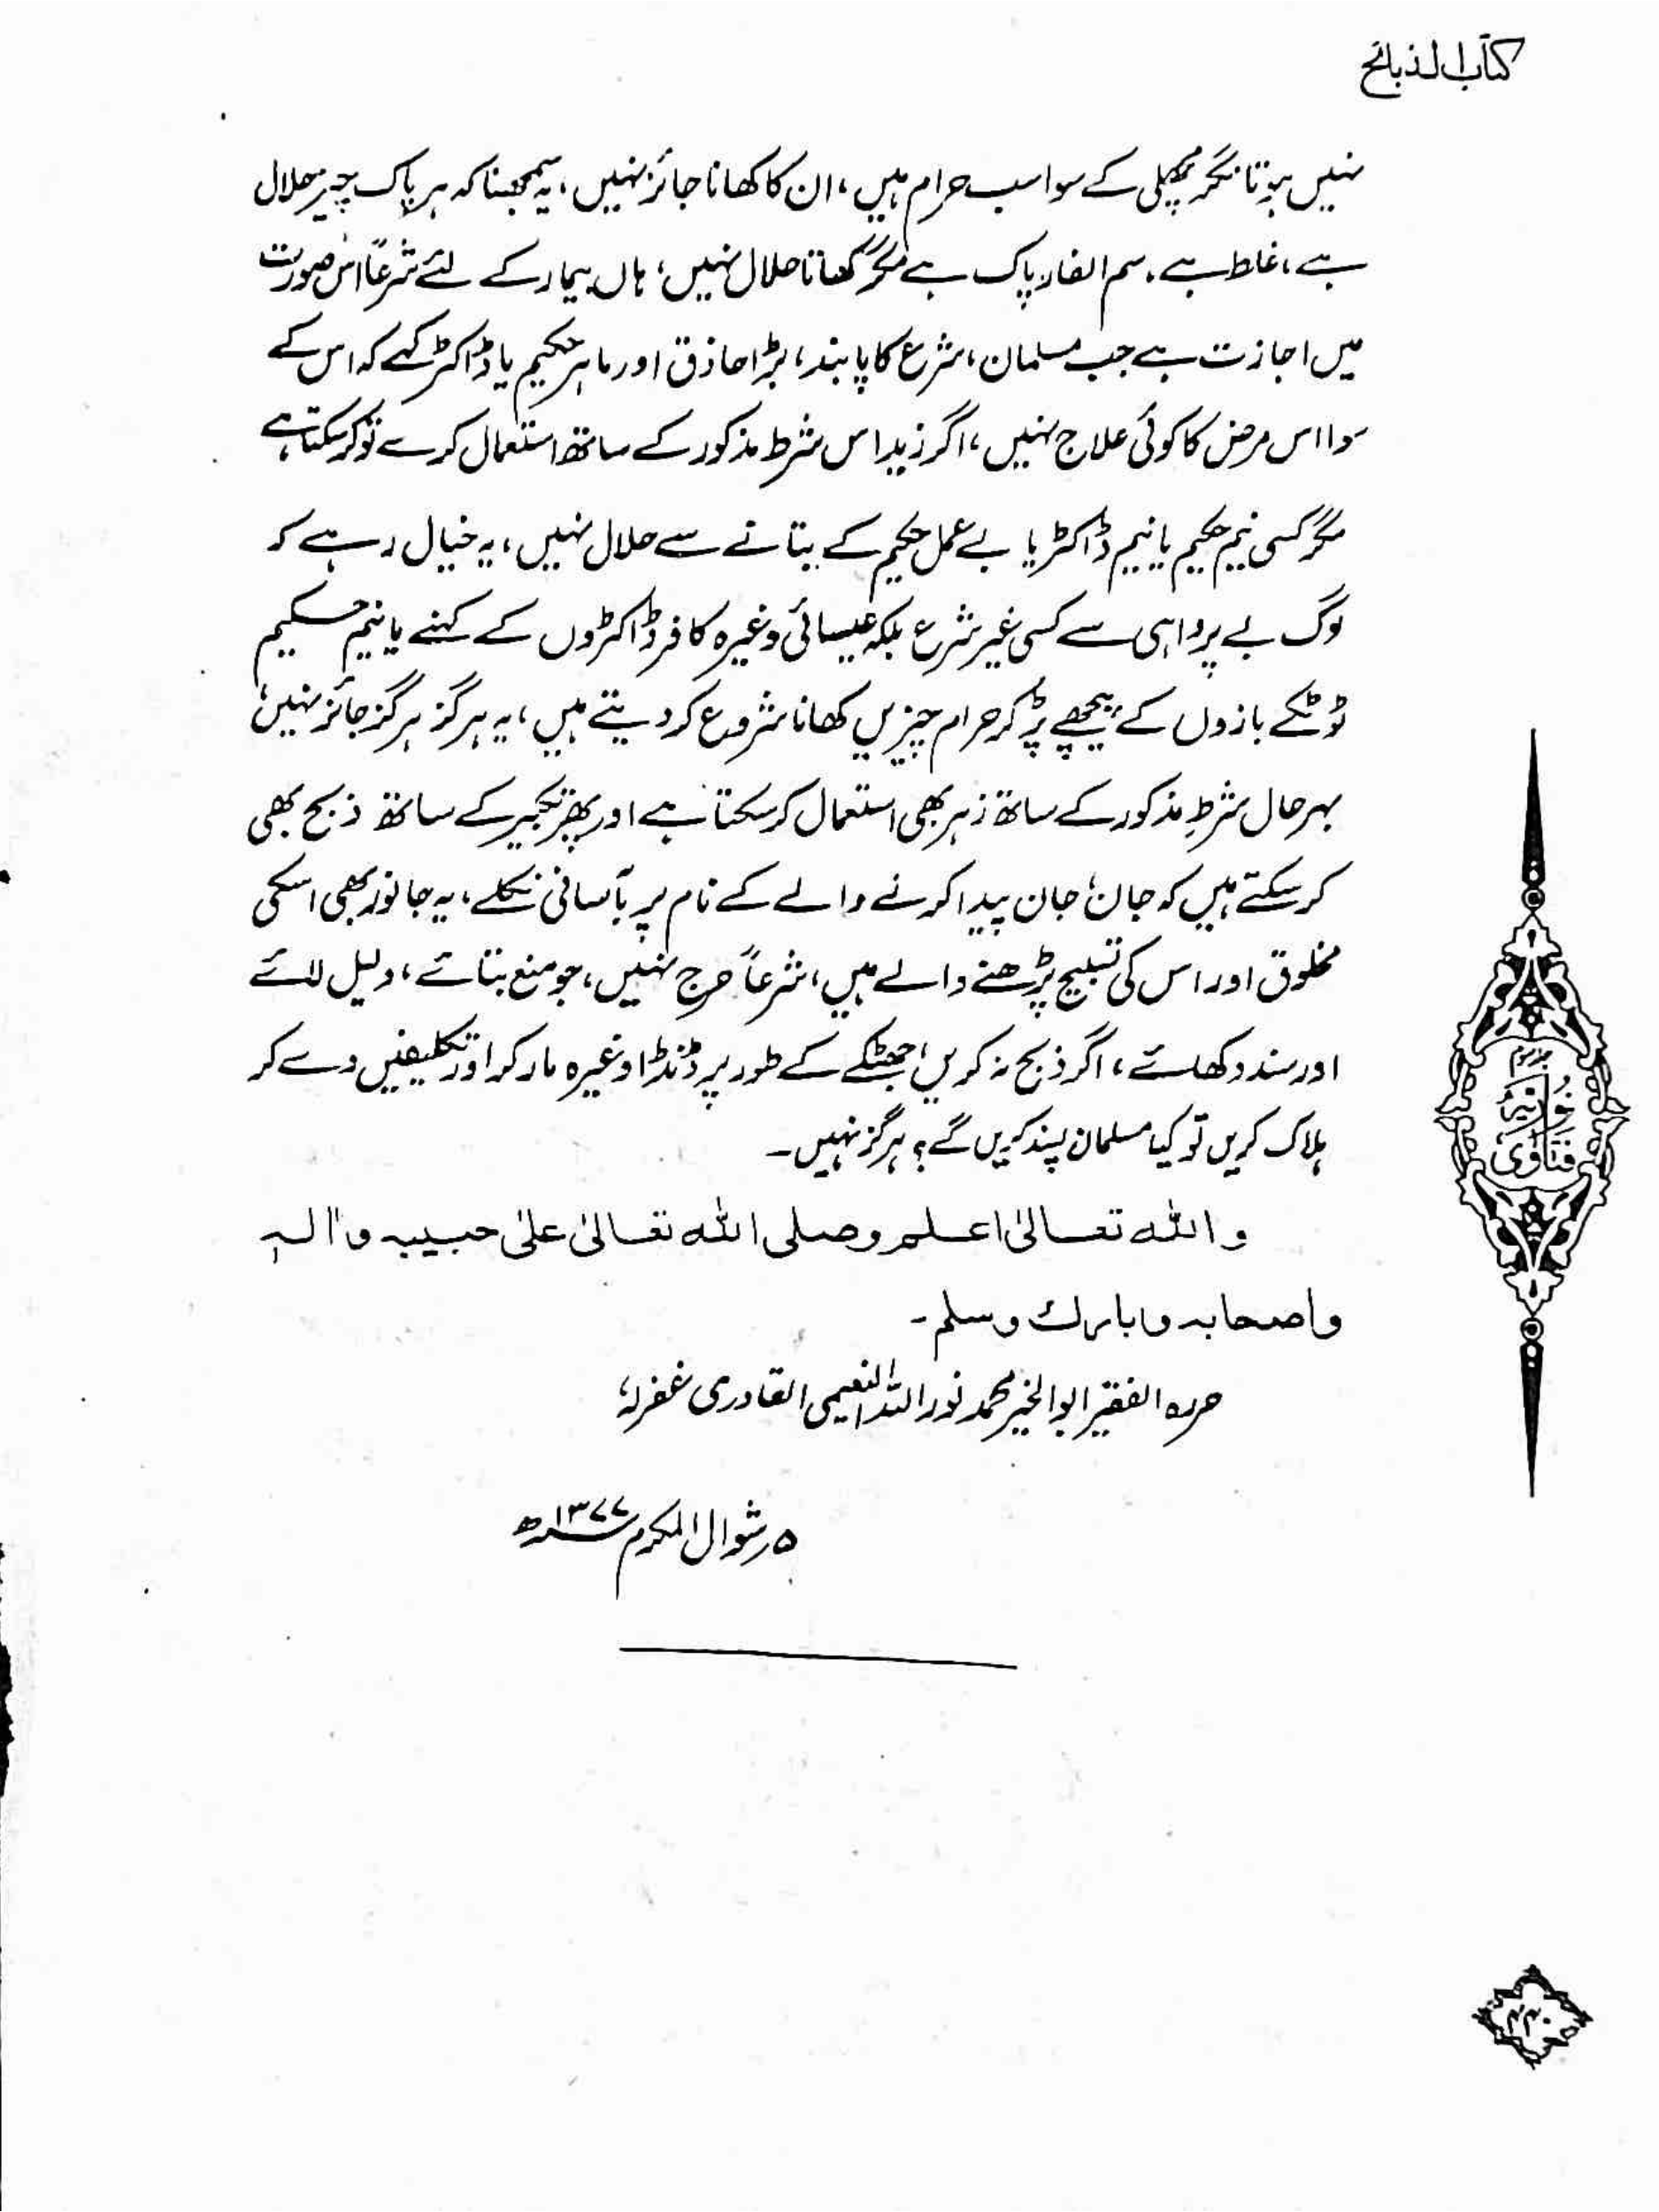 کتاب الذبائح
نہیں ہوتا مگر مچھلی کے سوا سب حرام ہیں، ان کا کھانا جائز نہیں، یہ سمجھنا کہ ہر پاک چیز حلال
ہے، غلط ہے۔ سم الفار پاک ہے مگر کھانا حلال نہیں، ہاں بیمار کے لئے شرعاً اس صورت
میں اجازت ہے جب مسلمان، شرع کا پابند، بڑا حاذق اور ماہر حکیم یا ڈاکٹر کہے کہ اس کے
سوا اس مرض کا کوئی علاج نہیں، اگر زید اس شرط مذکور کے ساتھ استعمال کرے تو کر سکتا ہے
مگر کسی نیم حکیم یا نیم ڈاکٹر یا بے عمل حکیم کے بتانے سے حلال نہیں، یہ خیال رہے کہ
لوگ بے پرواہی سے کسی غیر شرع بلکہ عیسائی وغیرہ کافر ڈاکٹروں کے کہنے یا نیم حکیم
ٹوٹکے بازوں کے پیچھے پڑ کر حرام چیزیں کھانا شروع کر دیتے ہیں، یہ ہرگز ہرگز جائز نہیں،
بہرحال شرطِ مذکور کے ساتھ زہر بھی استعمال کر سکتا ہے اور پھر تکبیر کے ساتھ ذبح بھی
کر سکتے ہیں کہ جان، جان پیدا کرنے والے کے نام پر بآسانی نکلے، یہ جانور بھی اسکی
مخلوق اور اس کی تسبیح پڑھنے والے ہیں، شرعاً حرج نہیں، جو منع بتائے، دلیل لائے
اور سند دکھائے، اگر ذبح نہ کریں، جھٹکے کے طور پر ڈنڈا وغیرہ مار کر اور تکلیفیں دے کر
ہلاک کریں تو کیا مسلمان پسند کریں گے؟ ہرگز نہیں۔
واللہ تعالیٰ اعلم وصلی اللہ تعالیٰ علیٰ حبیبہ واٰلہٖ
واصحابہ وبارک وسلم۔
حررہ الفقیر ابوالخیر محمد نور اللہ النعیمی القادری غفرلہ،
۵ر شوال المکرم ۱۳۷۷ھ
فتاویٰ نوریہ
۴۴۰